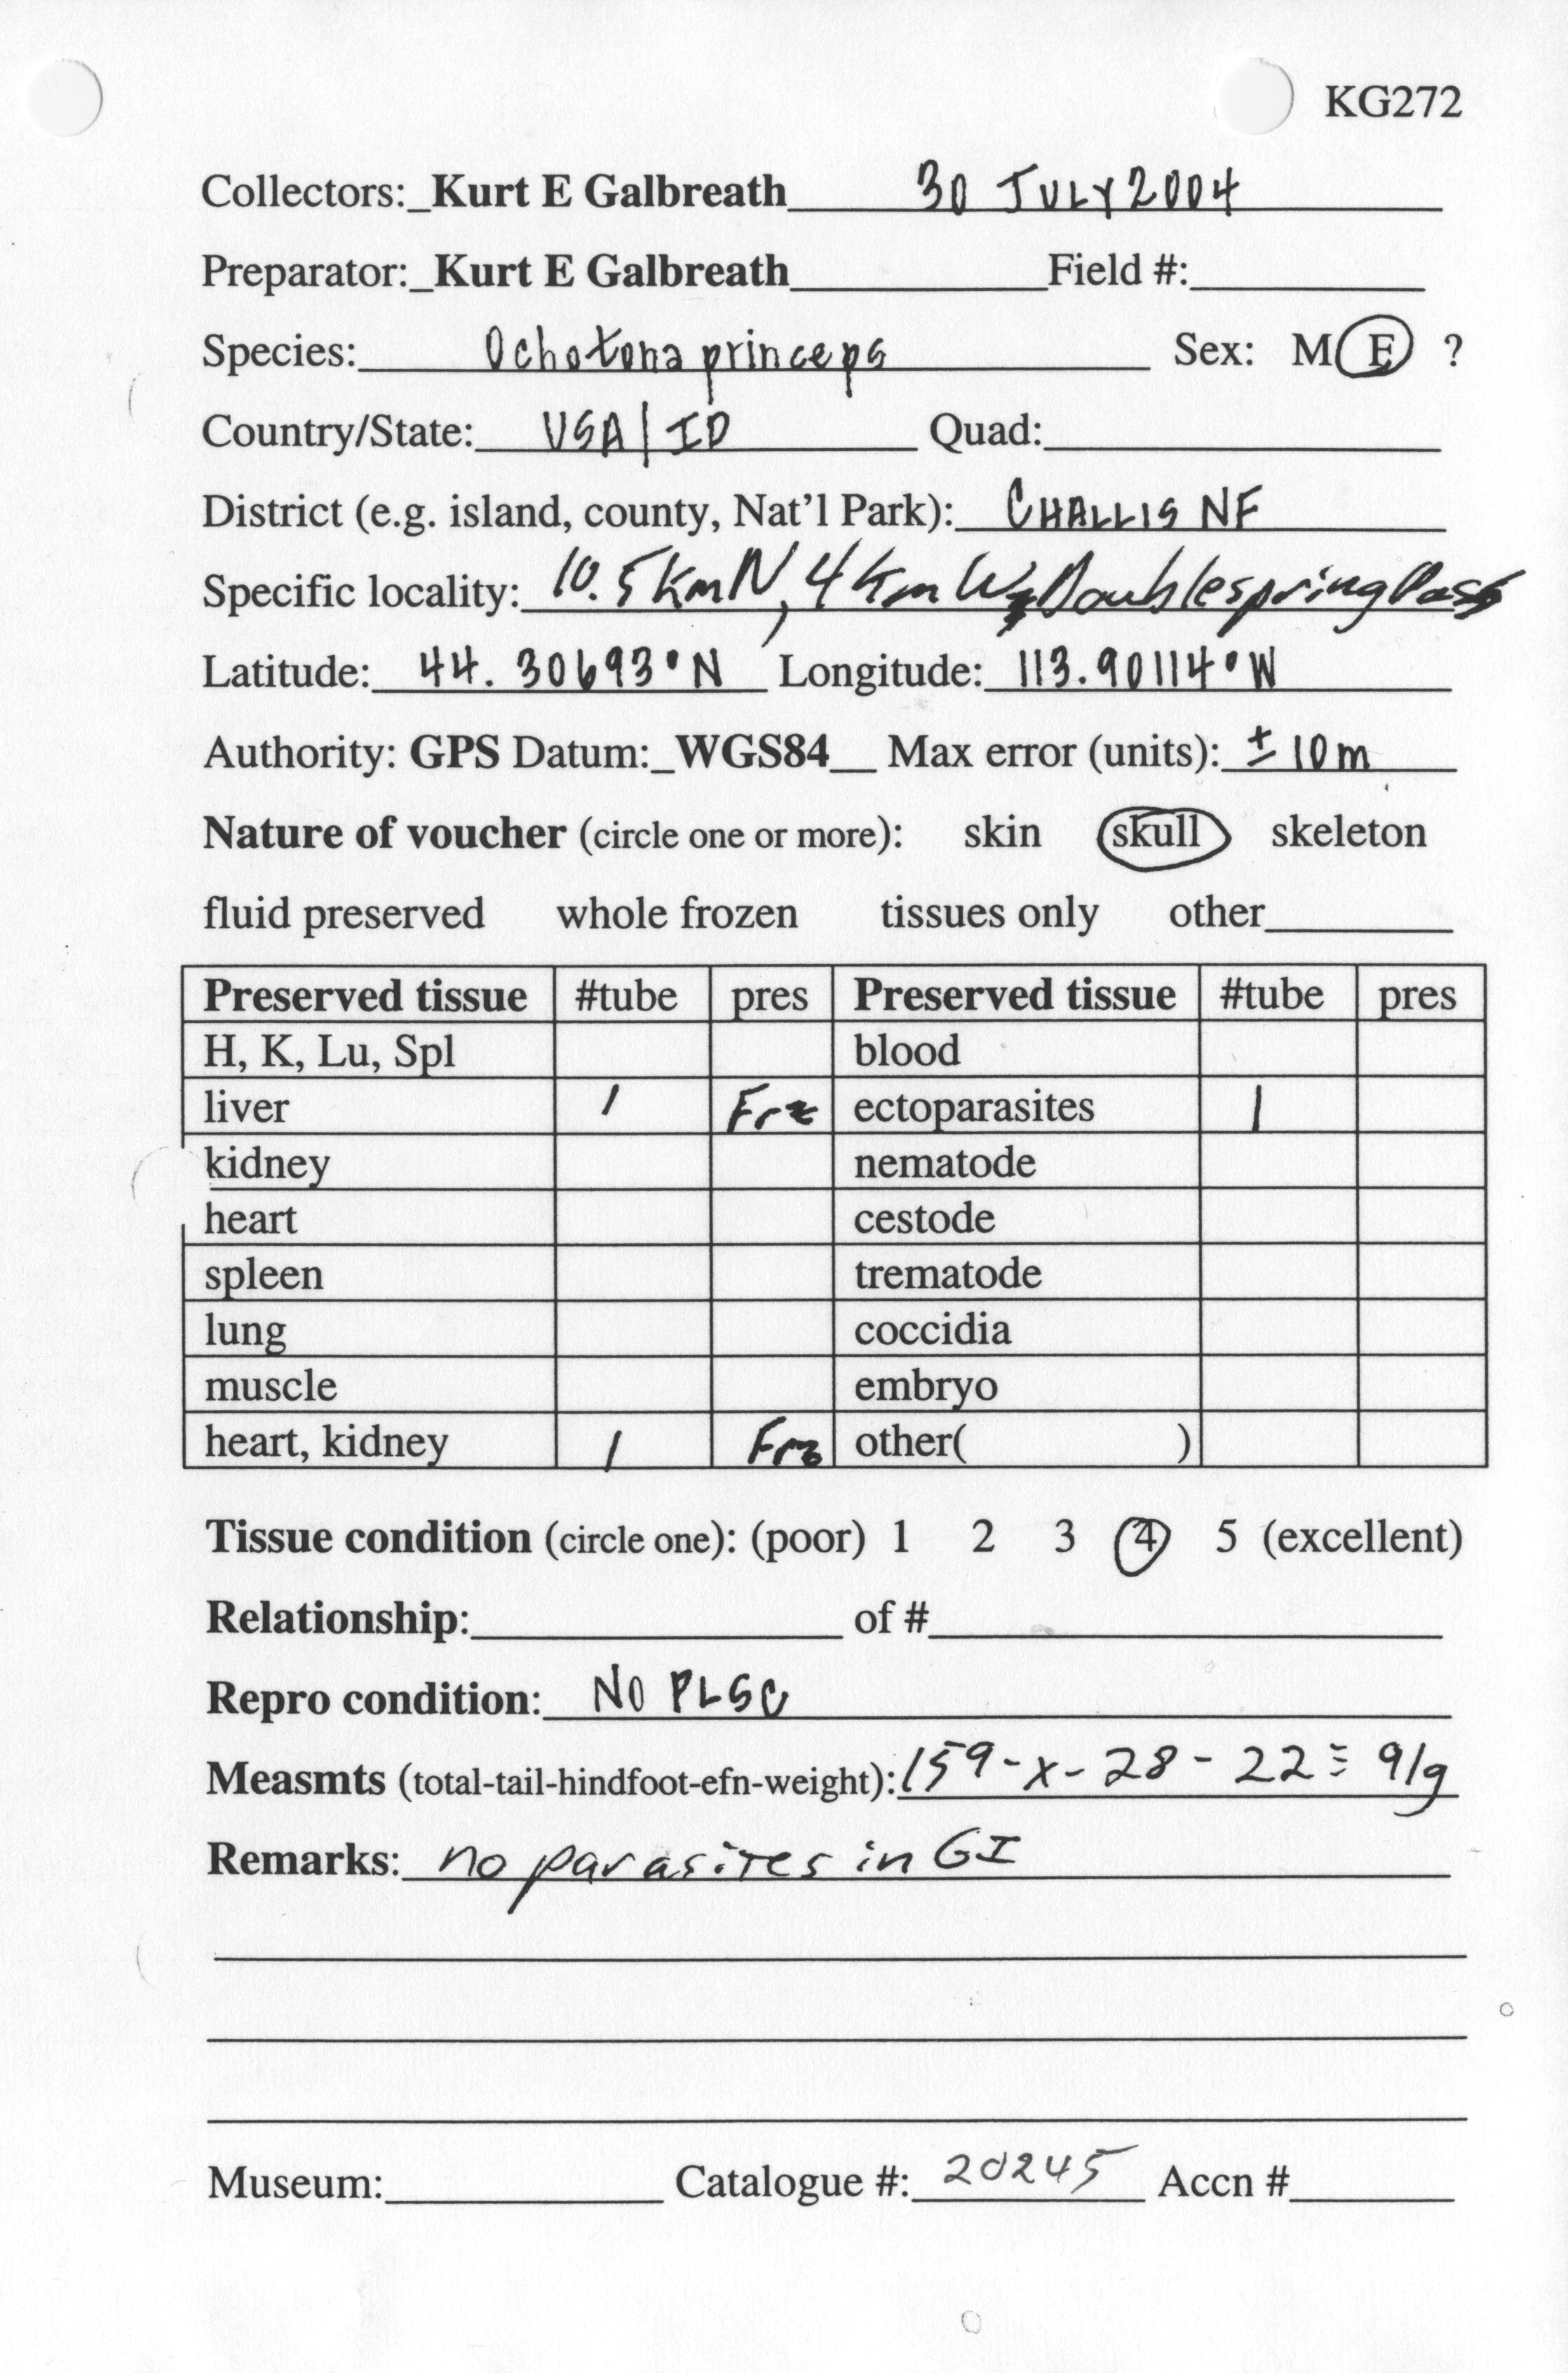 KG272
Collectors:_Kurt E Galbreath 30 JULY 2004
Preparator:_Kurt E Galbreath Field #:
Species: Ochotona princeps Sex: M F ?
Country/State: USA|ID Quad:
District (e.g. island, county, Nat'l Park): CHALLIS NF
Specific locality: 10.5 km N, 4 km W, Doublespring Pass
Latitude: 44.30693°N Longitude: 113.90114°W
Authority: GPS Datum:_WGS84__ Max error (units): ±10m
Nature of voucher (circle one or more): skin skull skeleton
fluid preserved whole frozen tissues only other
Preserved tissue #tube pres Preserved tissue #tube pres
H, K, Lu, Spl blood
liver 1 Frz ectoparasites 1
kidney nematode
heart cestode
spleen trematode
lung coccidia
muscle embryo
heart, kidney 1 Frz other( )
Tissue condition (circle one): (poor) 1 2 3 4 5 (excellent)
Relationship: of #
Repro condition: NO PLSC
Measmts (total-tail-hindfoot-efn-weight): 159-x-28-22≡91g
Remarks: no parasites in GI
Museum: Catalogue #: 20245 Accn #